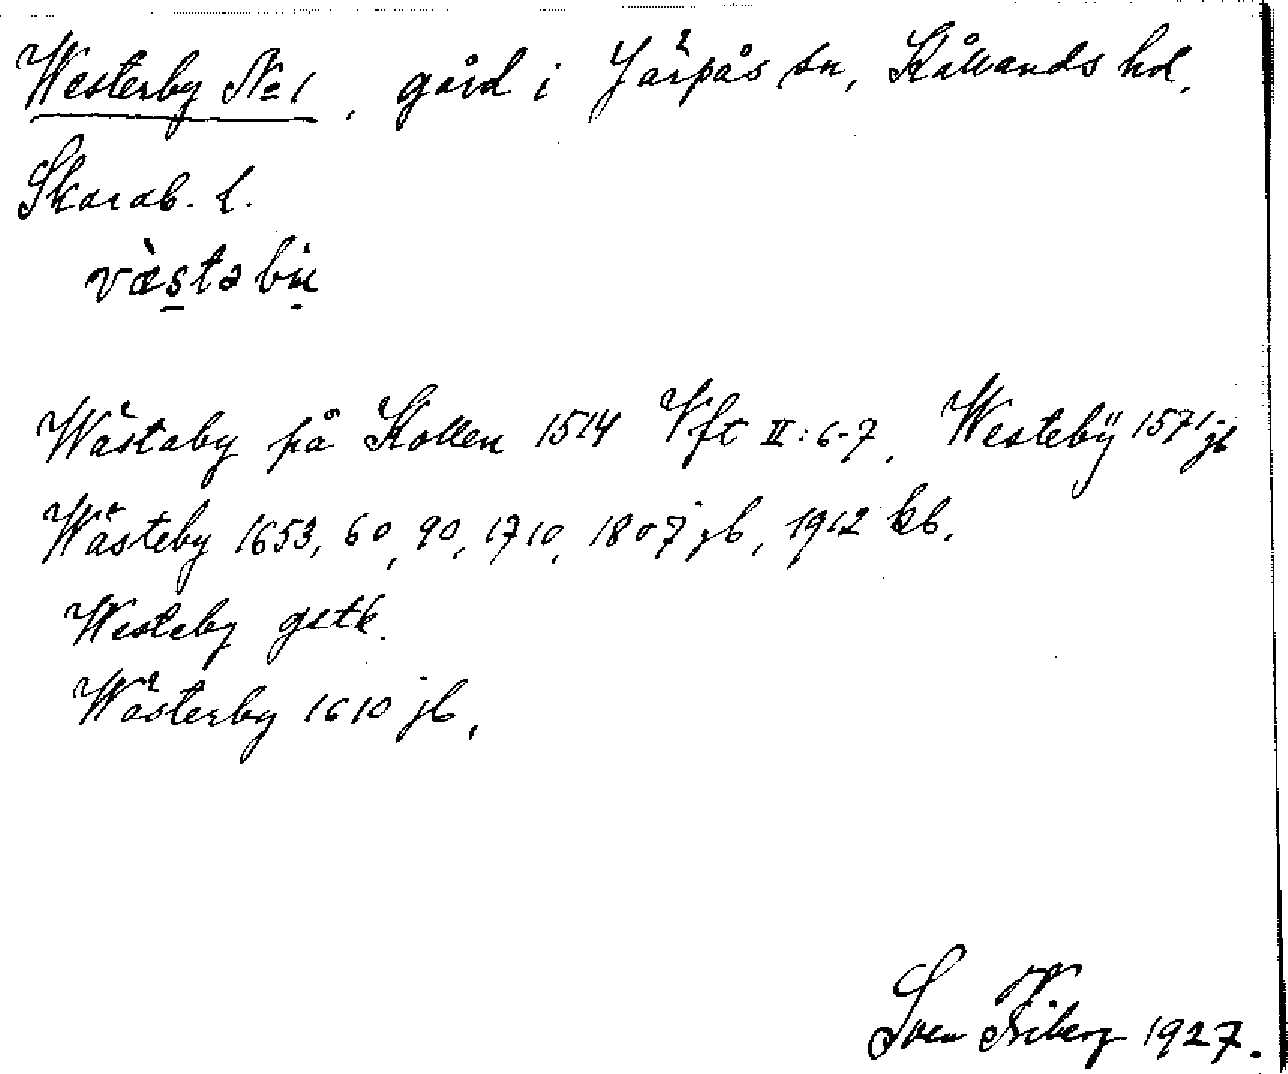 Westerby No 1, gård i Järpås sn, Kållands hd.
Skarab. l.
væ̀stabẏ
Wästaby på Kollen 1514 Vft II: 6-7. Westebÿ 1571 jb
Wästeby 1653, 60, 90, 1710, 1807 jb, 1912 kb.
Westeby gstk.
Wästerby 1610 jb,
Sven 1927.